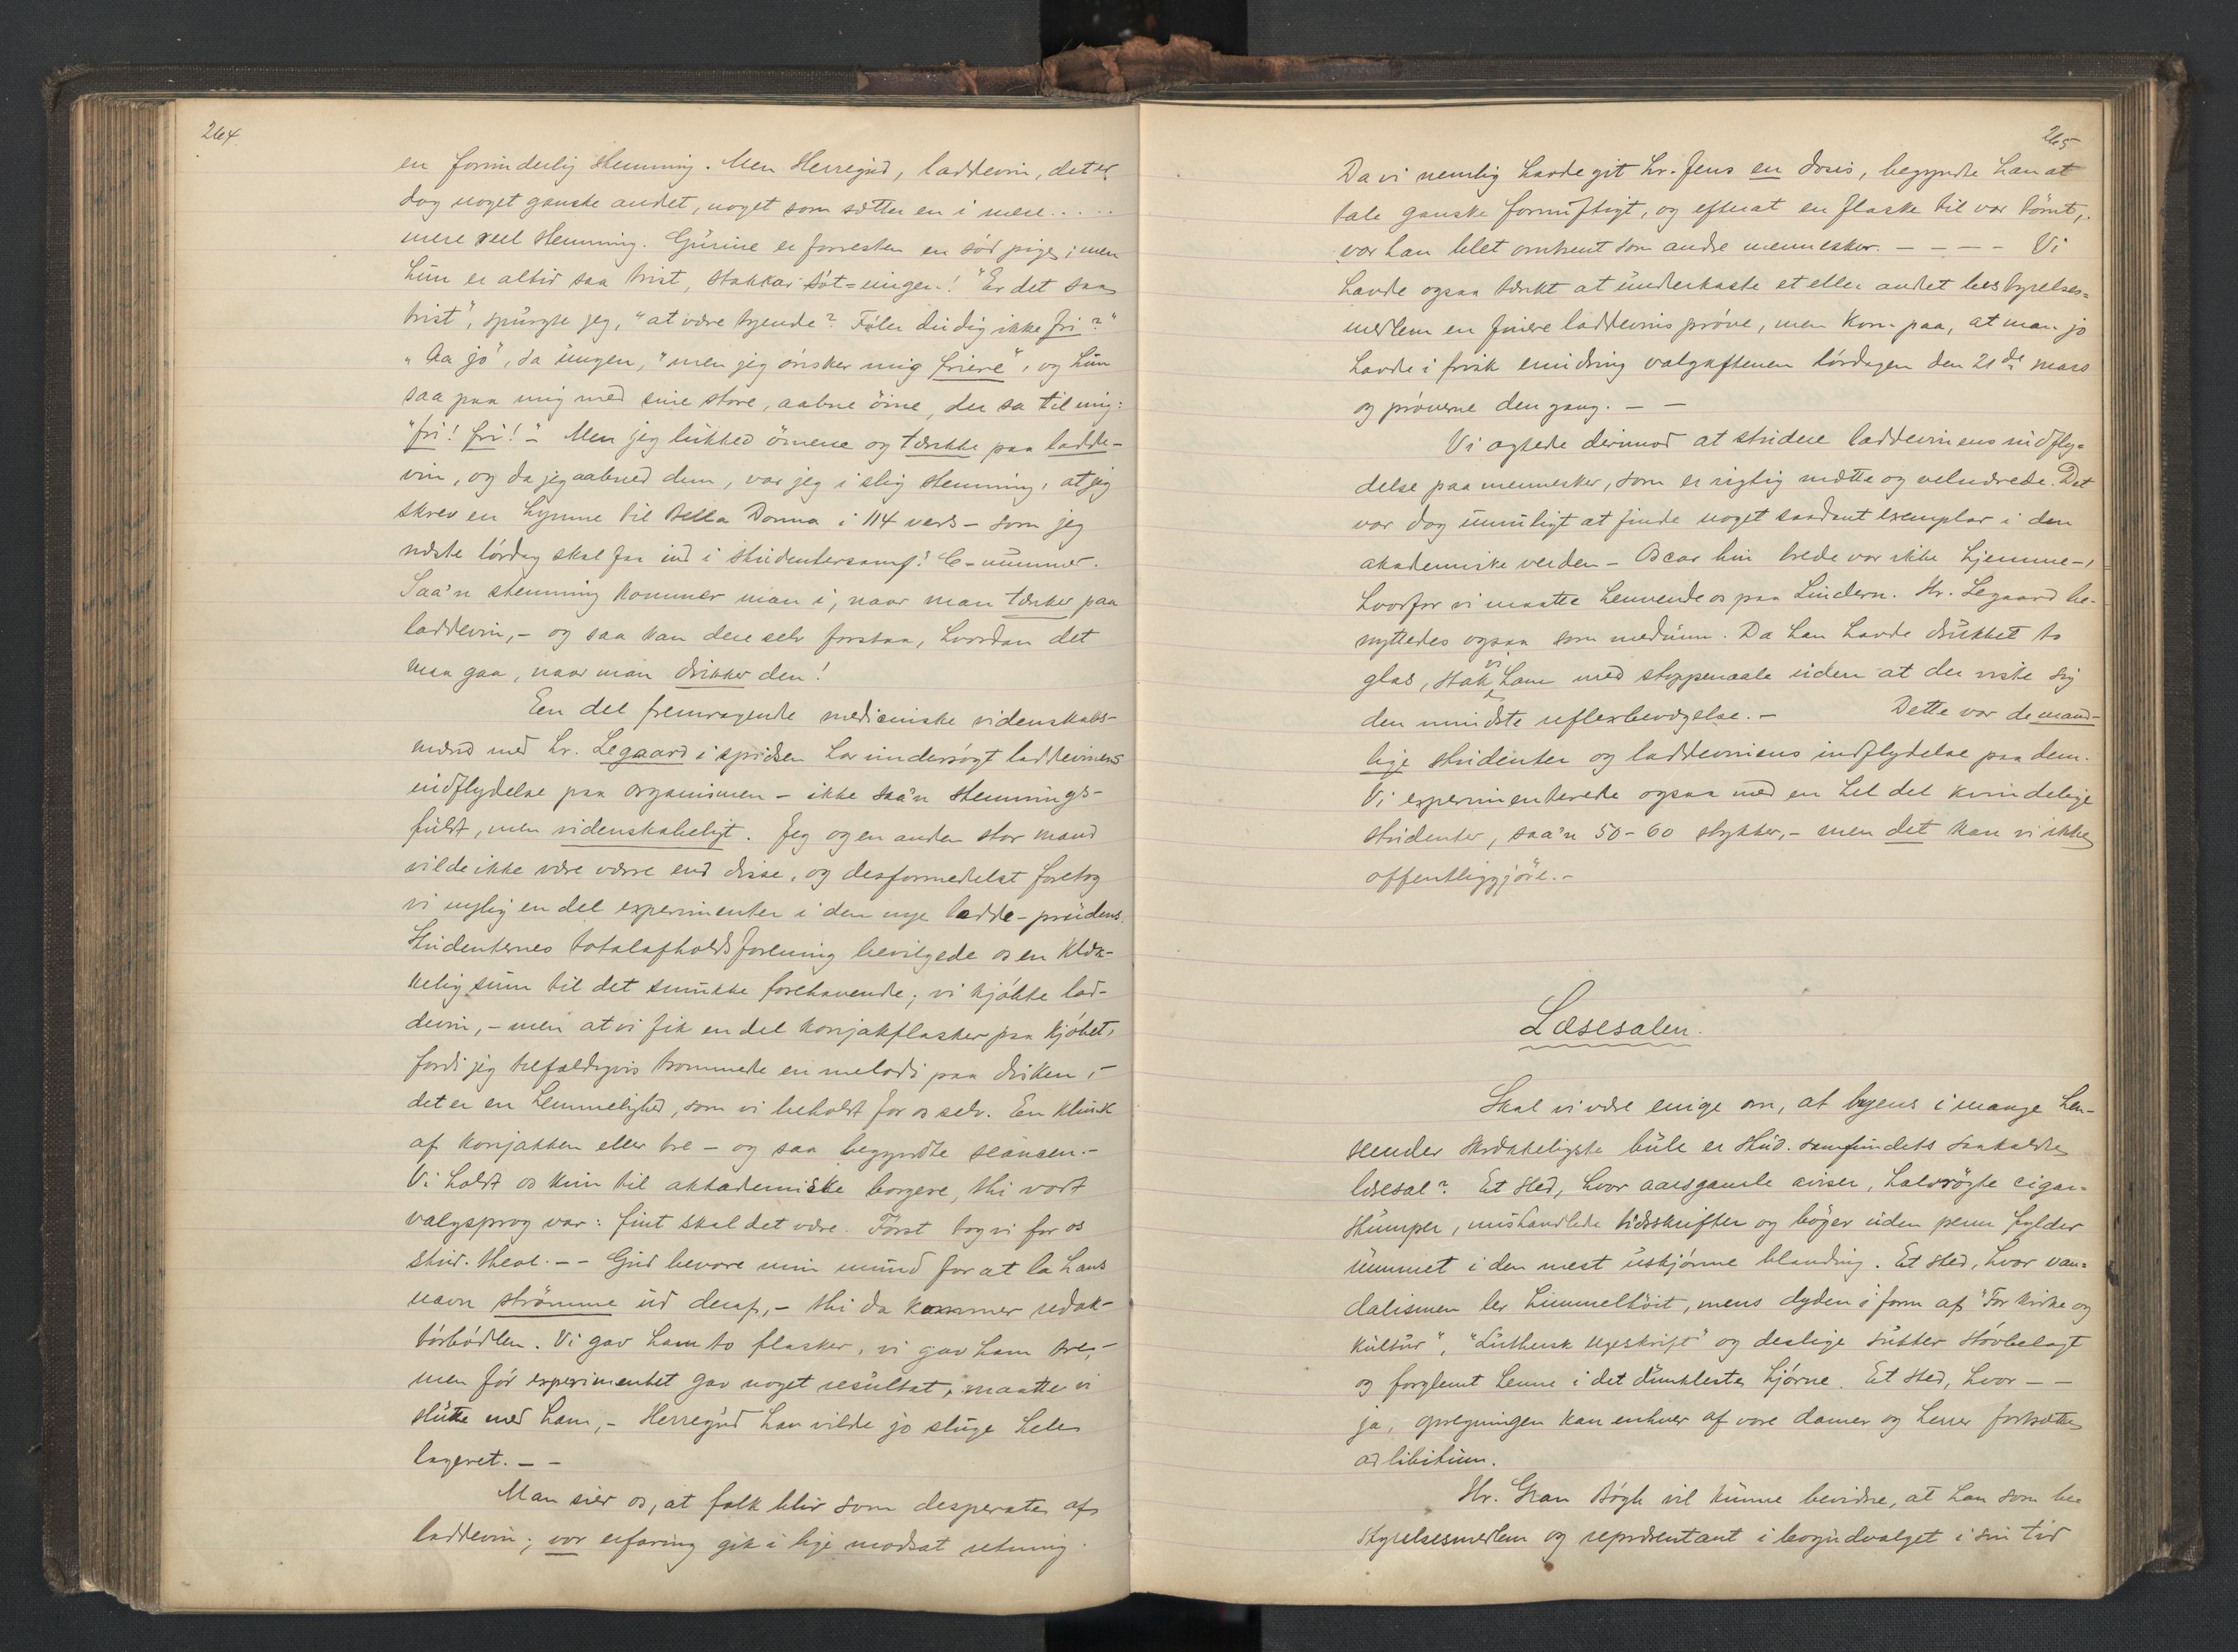 264.
en forunderlig stemning. Men Herregud, laddevin, det er
dog noget ganske andet, noget som sætter en i mere.....
mere reel stemning. Gurine er forresten en sød pige; men
hun er altid saa trist, stakkar søt=ungen! "Er det saa
trist", spurgte jeg, "at være tyende? Føler du dig ikke fri?"
"Aa jo", sa ungen, "men jeg ønsker mig friere", og hun
saa paa mig med sine store, aabne öine, der sa til mig:
"fri! fri!" – Men jeg lukked öinene og tænkte paa ladde-
vin, og da jeg aabned dem, var jeg i slig stemning, at jeg
skrev en hymne til Bella Donna i 114 vers – som jeg
næste lørdag skal faa ind i studentersamf.s C-nummer.
Saa'n stemning kommer man i, naar man tænker paa
laddevin, – og saa kan dere selv forstaa, hvordan det
maa gaa, naar man drikker den!
En del fremragende medicinske videnskabs-
mænd med hr. Legaard i spidsen har undersøgt laddevinens
indflydelse paa organismen – ikke saa'n stemnings-
fuldt, men videnskabeligt. Jeg og en anden stor mand
vilde ikke være værre end disse, og desformedelst foretog
vi nylig en del experimenter i den nye ladde-prudens.
Studenternes totalafholdsforening bevilgede os en klæk-
kelig sum til det smukke forehavende; vi kjøbte lad-
devin, – men at vi fik en del konjakflasker paa kjøbet,
fordi jeg tilfældigvis trommede en melodi paa disken, –
det er en hemmelighed, som vi beholdt for os selv. En klunk
af konjakken eller tre – og saa begyndte seancen. –
Vi holdt os kun til akkademiske borgere, thi vort
valgsprog var: fint skal det være. Först tog vi for os
stud. theol. – – Gud bevare min mund for at la hans
navn strömme ud deraf, – thi da kommer redak-
törbödlen. Vi gav ham to flasker, vi gav ham tre, –
men för experimentet gav noget resultat, maatte vi
slutte med ham, – Herregud han vilde jo sluge hele
lageret. – –
Man sier os, at folk blir som desperate af
laddevin; vor erfaring gik i lige modsat retning.
265
Da vi nemlig havde git hr. Jens en dosis, begyndte han at
tale ganske fornuftigt, og efterat en flaske til var tömt,
var han blet omtrent som andre mennesker. – – – – Vi
havde ogsaa tænkt at underkaste et eller andet bestyrelses=
medlem en finere laddevins pröve, men kom paa, at man jo
havde i frisk erindring valgaftenen lördagen den 21de mars
og pröverne den gang. – –
Vi agtede derimod at studere laddevinens indfly=
delse paa mennesker, som er rigtig mætte og velnærede. Det
var dog umuligt at finde noget saadant exemplar i den
akademiske verden – Oscar hin brede var ikke hjemme –,
hvorfor vi maatte henvende os paa Lindern. Hr. Legaard be-
nyttedes ogsaa som medium. Da han havde drukket to
glas, stak vi ham med stoppenaale uden at der viste sig
den mindste reflexbevægelse. – Dette var de mand-
lige studenter og laddevinens indflydelse paa dem.
Vi experimenterede ogsaa med en hel del kvindelige
studenter, saa'n 50-60 stykker, – men det kan vi ikke
offentliggjöre. –
Læsesalen.
Skal vi være enige om, at byens i mange hen-
seender skrækkeligste bule er stud. samfundets saakaldte
læsesal? Et sted, hvor aarsgamle aviser, halvrögte cigar=
stumper, mishandlede tidsskrifter og böger uden perm fylder
rummet i den mest uskjönne blanding. Et sted, hvor van=
dalismen ler himmelhöit, mens dyden i form af "For kirke og
kultur", "Luthersk ugeskrift" og deslige sukker stövbelagt
og forglemt henne i det dunkleste hjörne. Et sted, hvor – –
ja, opregningen kan enhver af vore damer og herrer fortsætte
ad libitum.
Hr. Gran Bögh vil kunne bevidne, at han som be
styrelsesmedlem og repræsentant i bogudvalget i sin tid